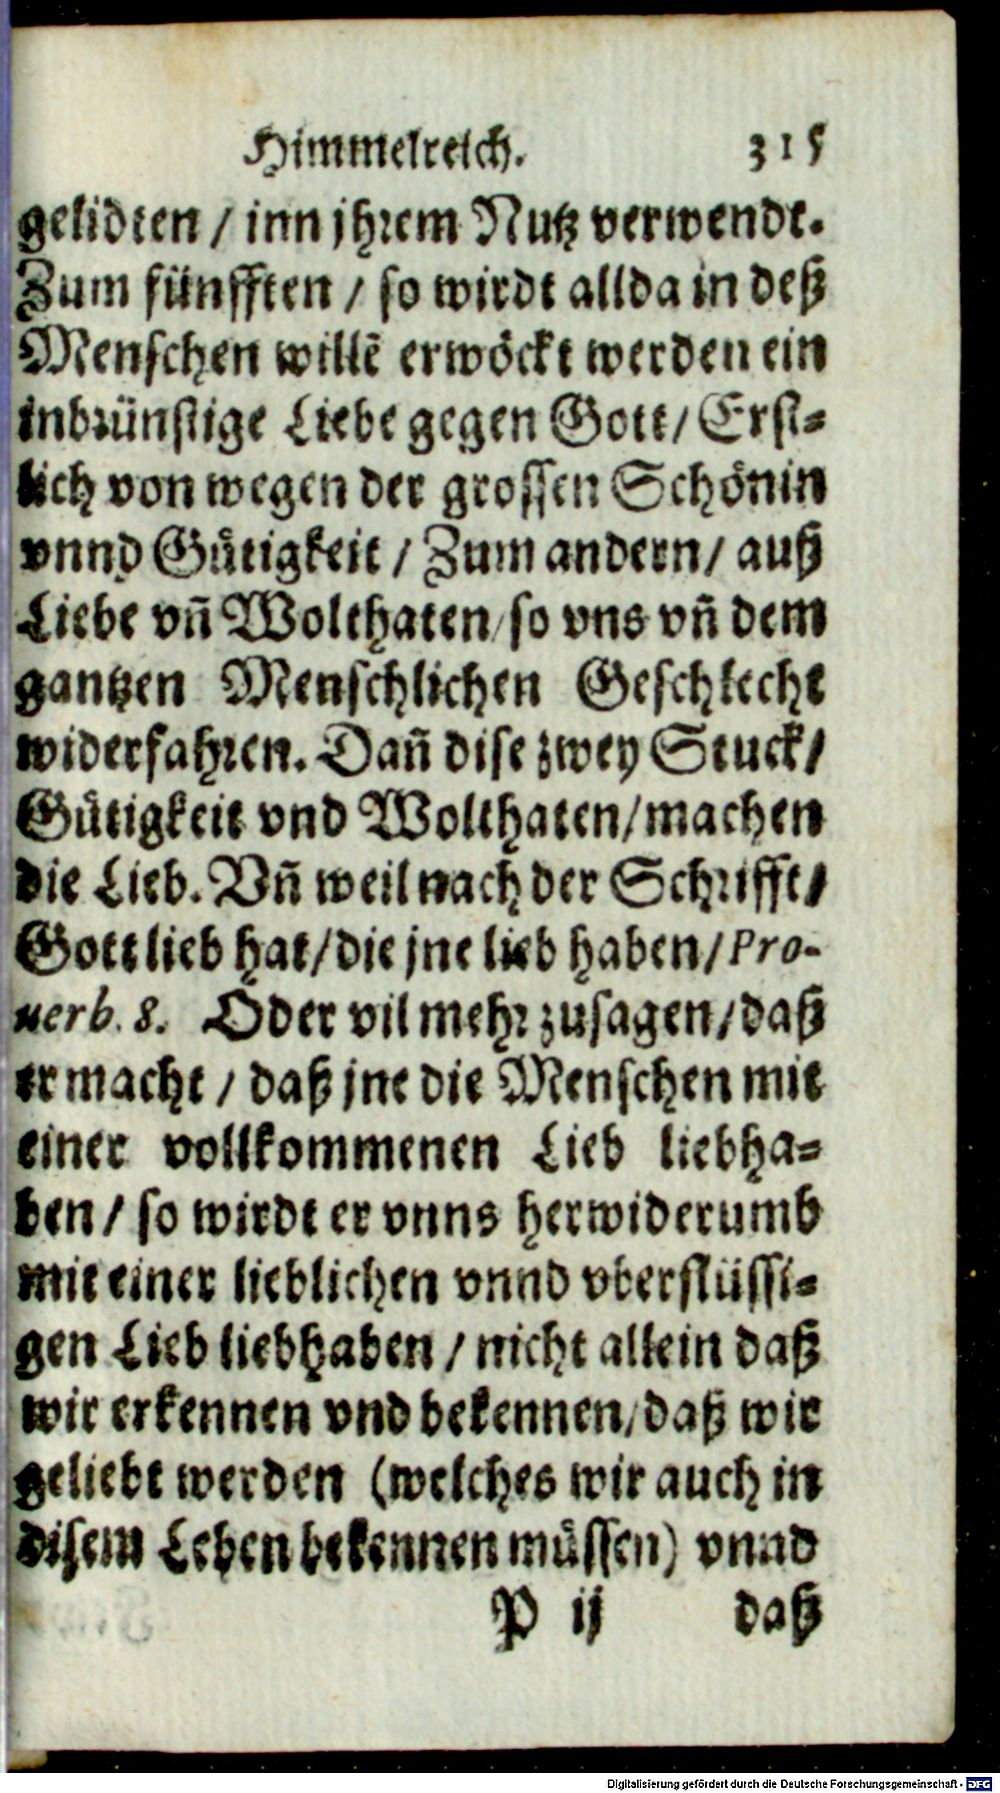 Himmelreich. 315
gelidten / inn jhrem Nutz verwendt.
Zum fünfften / so wirdt allda in deß
Menschen willē erwöckt werden ein
inbrünstige Liebe gegen Gott / Erst-
lich von wegen der grossen Schönin
vnnd Gütigkeit / Zum andern / auß
Liebe vn̄ Wolthaten / so vns vn̄ dem
gantzen Menschlichen Geschlecht
widerfahren. Dan̄ dise zwey Stuck /
Gütigkeit vnd Wolthaten / machen
die Lieb. Vn̄ weil nach der Schrifft /
Gott lieb hat / die jne lieb haben / Pro-
uerb. 8. Oder vil mehr zusagen / daß
er macht / daß jne die Menschen mit
einer vollkommenen Lieb liebha-
ben / so wirdt er vnns herwiderumb
mit einer lieblichen vnnd vberflüssi-
gen Lieb liebhaben / nicht allein daß
wir erkennen vnd bekennen / daß wir
geliebt werden (welches wir auch in
disem Leben bekennen müssen) vnnd
P ij daß
Digitalisierung gefördert durch die Deutsche Forschungsgemeinschaft - DFG